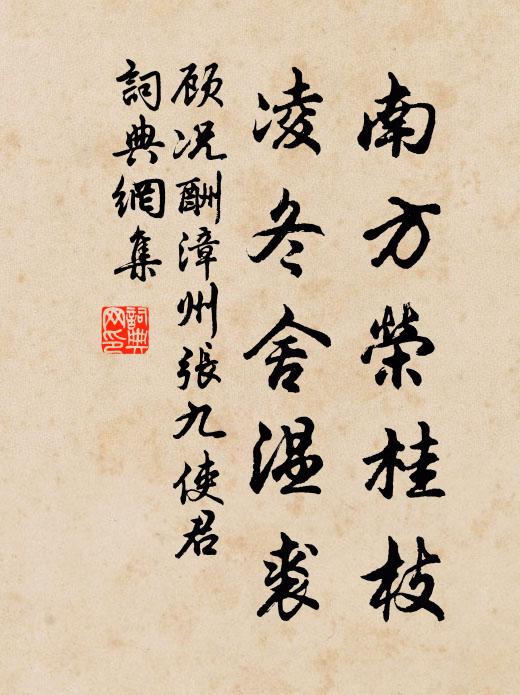 南方榮桂枝
凌冬舍温裘
顾况酬漳州張九使君
詞典網集
詞典网印